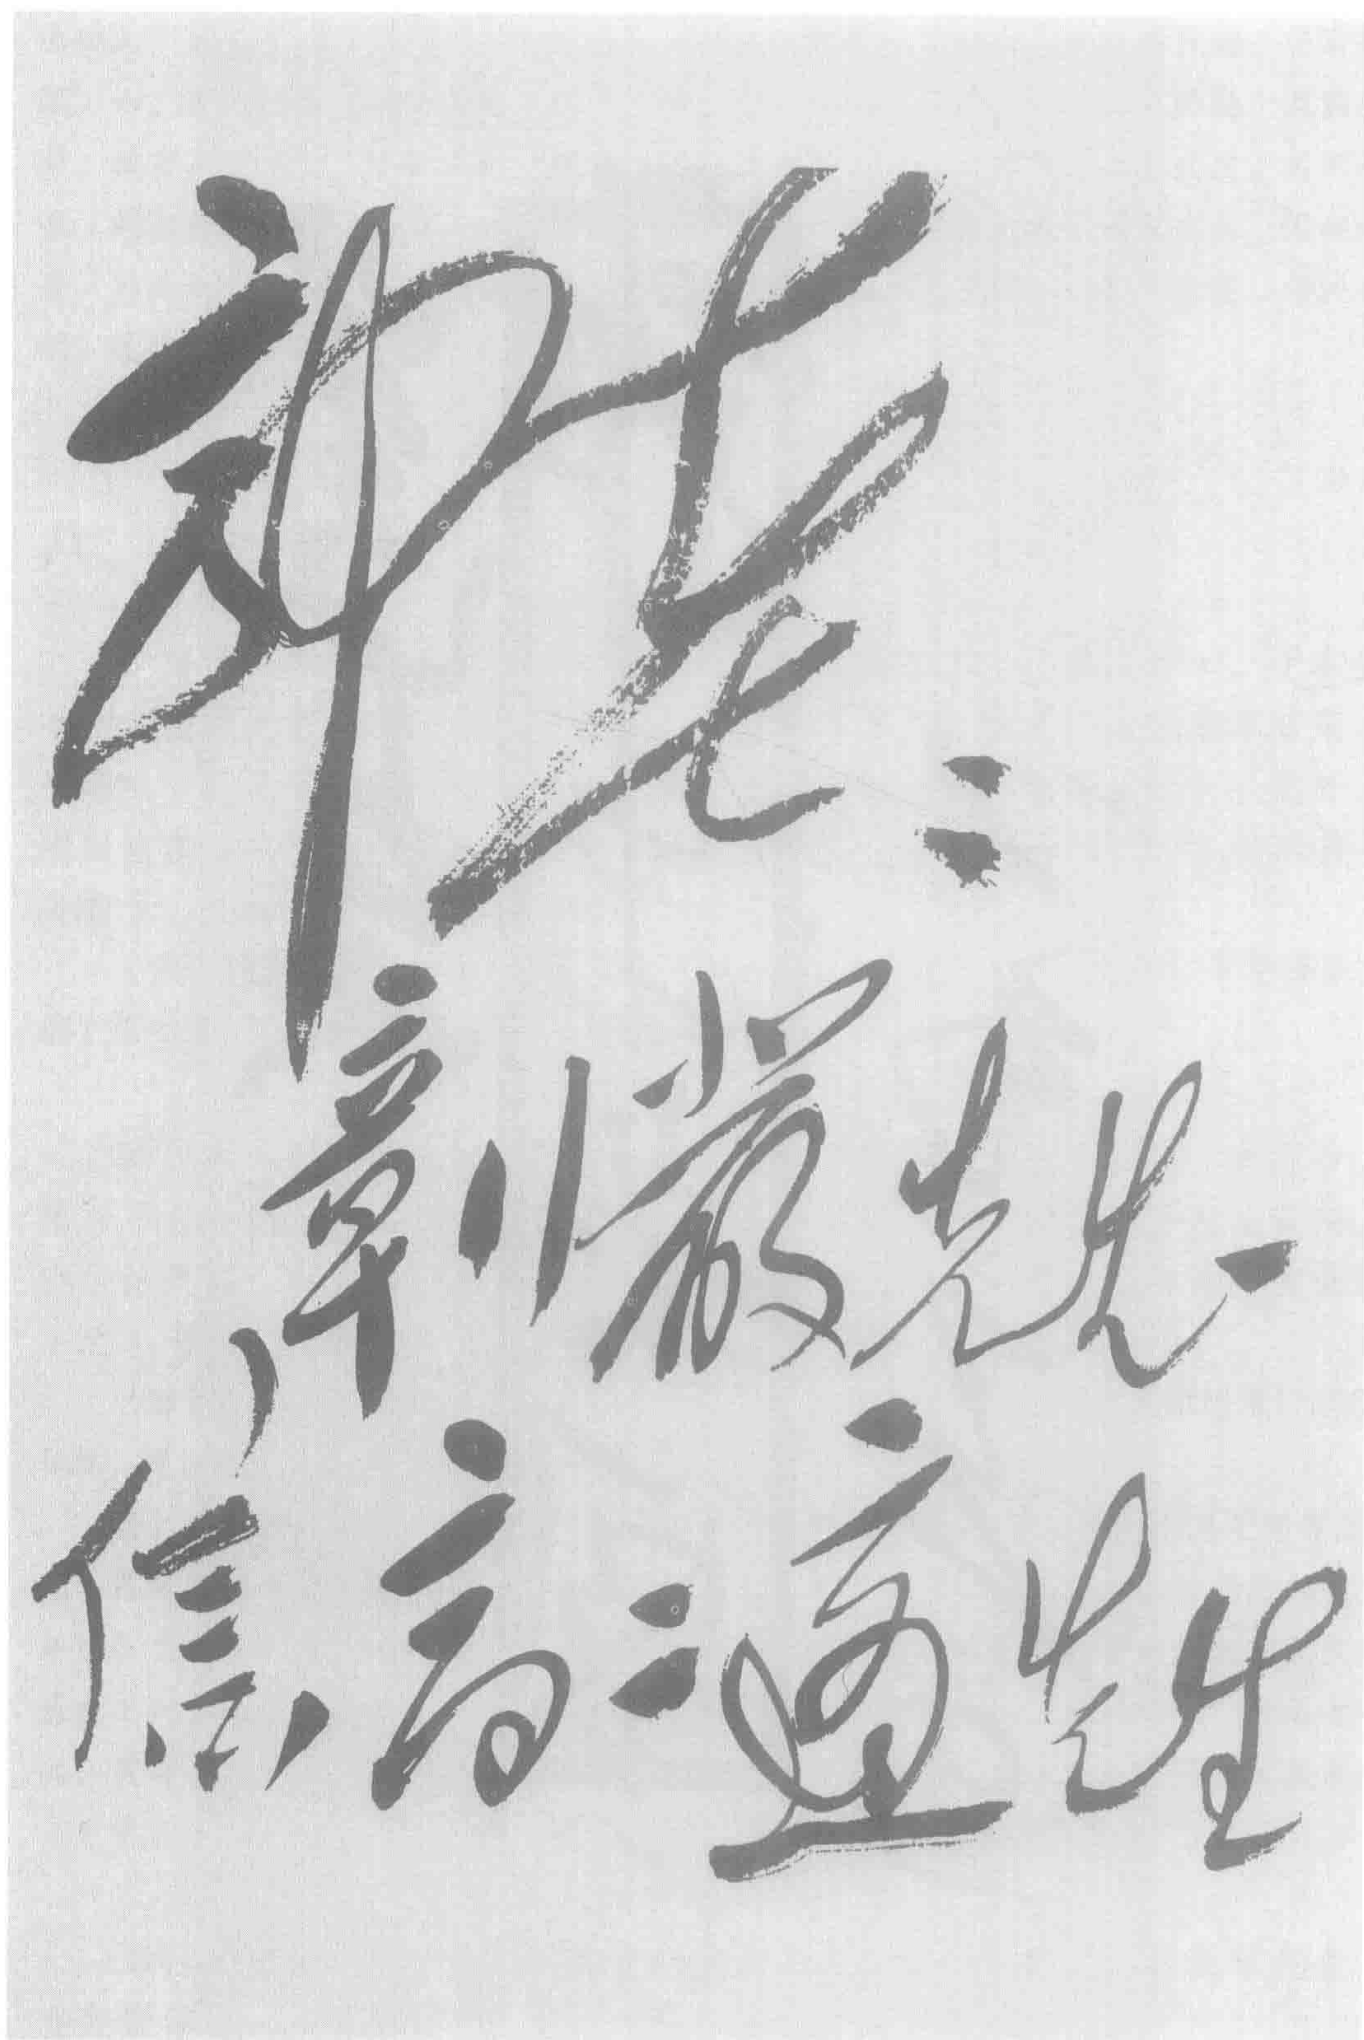 郭老：
章行嚴先生一
信，高二適先生